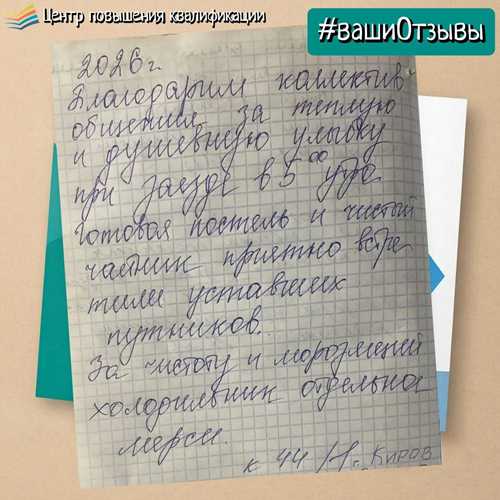 Центр повышения квалификации
#вашиОтзывы
2026 г.
Благодарим коллектив
общения за теплую
и душевную улыбку
при заезде в 5⁰⁰ утра
Готовая постель и чистый
чайник приятно встре
тили уставших
путников.
За чистоту и морозящий
холодильник отдельное
мерси.
к 44 / г. Киров